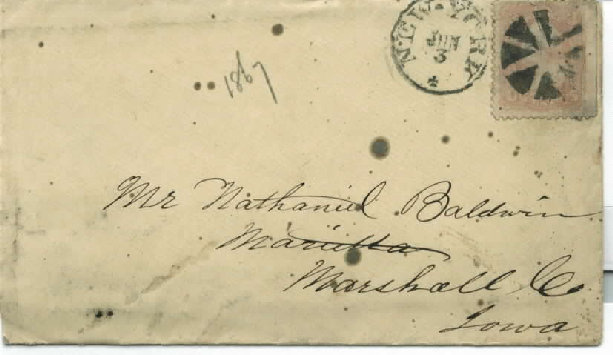 NEW-YORK
JUN
3
1867
Mr Nathaniel Baldwin
Marietta
Marshall Co
Iowa